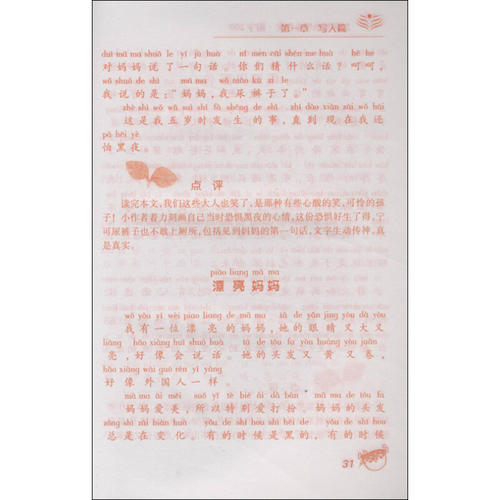 第一章 写人篇
duì mā ma shuō le yī jù huà nǐ men cāi shén me huà hē he
对妈妈说了一句话。你们猜什么话？呵呵，
wǒ shuō de shì mā ma wǒ niào kù zi le
我说的是：“妈妈，我尿裤子了。”
zhè shì wǒ wǔ suì shí fā shēng de shì zhí dào xiàn zài wǒ hái
这是我五岁时发生的事，直到现在我还
pà hēi yè
怕黑夜。
点评
读完本文，我们这些大人也笑了，是那种有些心酸的笑，可怜的孩
子！小作者着力刻画自己当时恐惧黑夜的心情，这份恐惧好生了得，宁
可尿裤子也不敢上厕所，包括见到妈妈的第一句话，文字生动传神，真
是真实。
piào liang mā ma
漂亮妈妈
wǒ yǒu yī wèi piào liang de mā ma tā de yǎn jīng yòu dà yòu
我有一位漂亮的妈妈，她的眼睛又大又
liàng hǎo xiàng huì shuō huà tā de tóu fa yòu huáng yòu juǎn
亮，好像会说话。她的头发又黄又卷，
hǎo xiàng wài guó rén yī yàng
好像外国人一样。
mā ma ài měi suǒ yǐ tè bié ài dǎ bàn mā ma de tóu fa
妈妈爱美，所以特别爱打扮，妈妈的头发
zǒng shì zài biàn huà yǒu de shí hou shì hēi de yǒu de shí hou
总是在变化，有的时候是黑的，有的时候
31